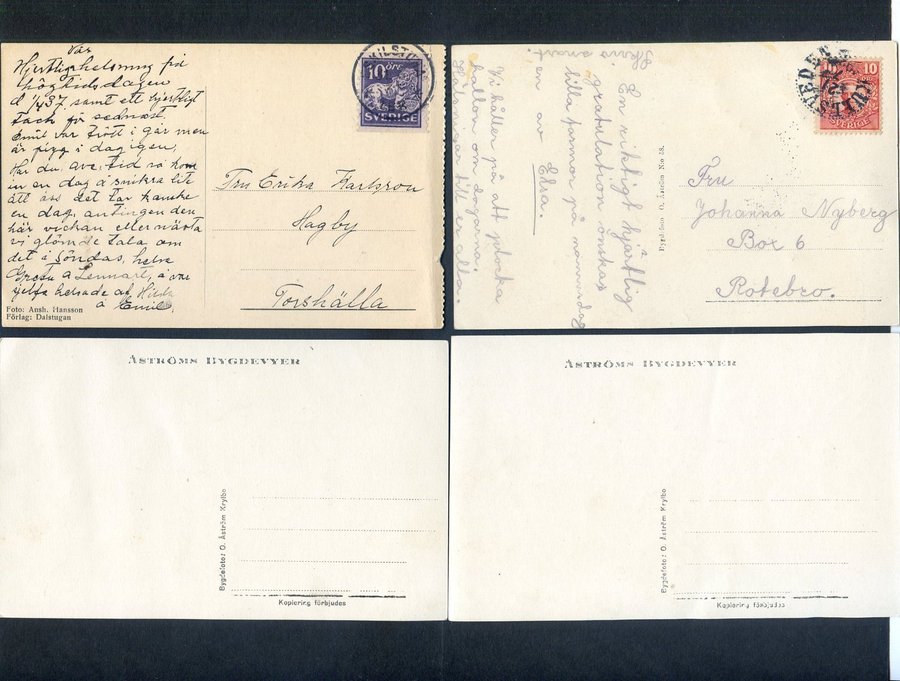 Vår
Hjertlighelsning från
högtidsdagen
d 1/4 37. samt ett hjertligt
tack för sednast.
Emil var trött i går men
är pigg i dag igen,
Har du, ave, tid så kom
in en dag å snikra lite
ått oss det tar kanske
en dag, antingen den
här vickan eller nästa
vi glömde tala om
det i Söndas, helse
Greta å Lennart, å
sjelfa helsade af Hilda
å Emil.
Foto: Ansh. Hansson
Förlag: Dalstugan
ILSTUNA
10 ÖRE
SVERIGE
Fru Erika Karlsson
Hagby
Torshälla
En riktigt hjärtlig
gratulation önskas
lilla farmor på namnsdag
en av Elsa.
Vi håller på att plocka
hallon om dagarna.
Hälsningar till er alla.
Skriv snart!
Bygdefoto O. Åström N:o 58.
10
SVERIGE
Fru
Johanna Nyberg
Box 6
Rotebro.
ÅSTRÖMS BYGDEVYER
Bygdefoto: O. Åström Krylbo
Kopiering förbjudes
ÅSTRÖMS BYGDEVYER
Bygdefoto: O. Åström Krylbo
Kopiering förbjudes